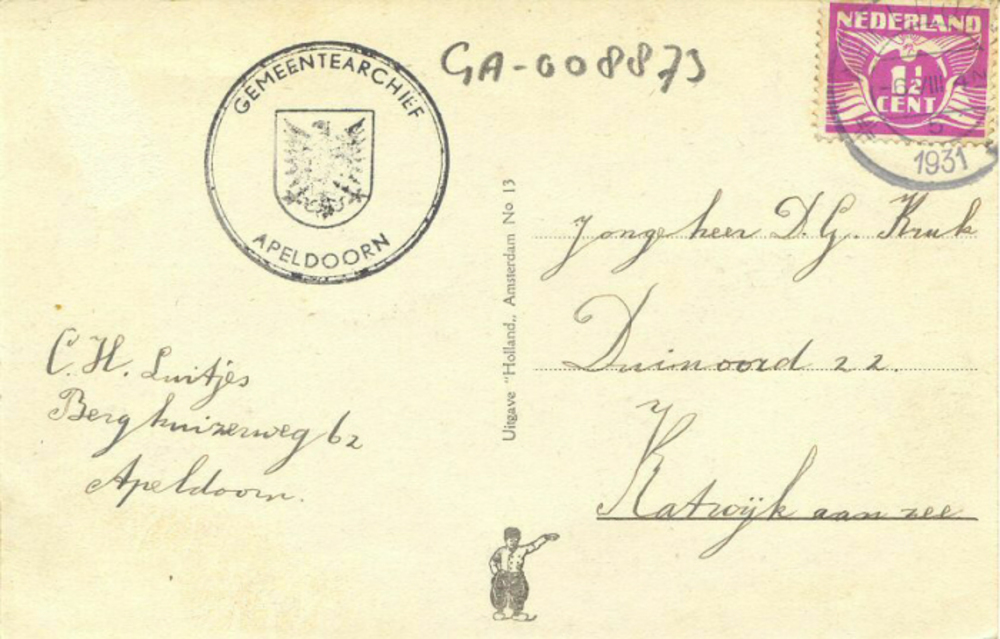 GEMEENTEARCHIEF
APELDOORN
GA-008873
NEDERLAND
1½
CENT
VIII
1931
C. H. Luitjes
Berghuizerweg 62
Apeldoorn.
Uitgave "Holland,, Amsterdam No 13
Jongeheer D. G. Kruk
Duinoord 22.
Katwijk aan zee